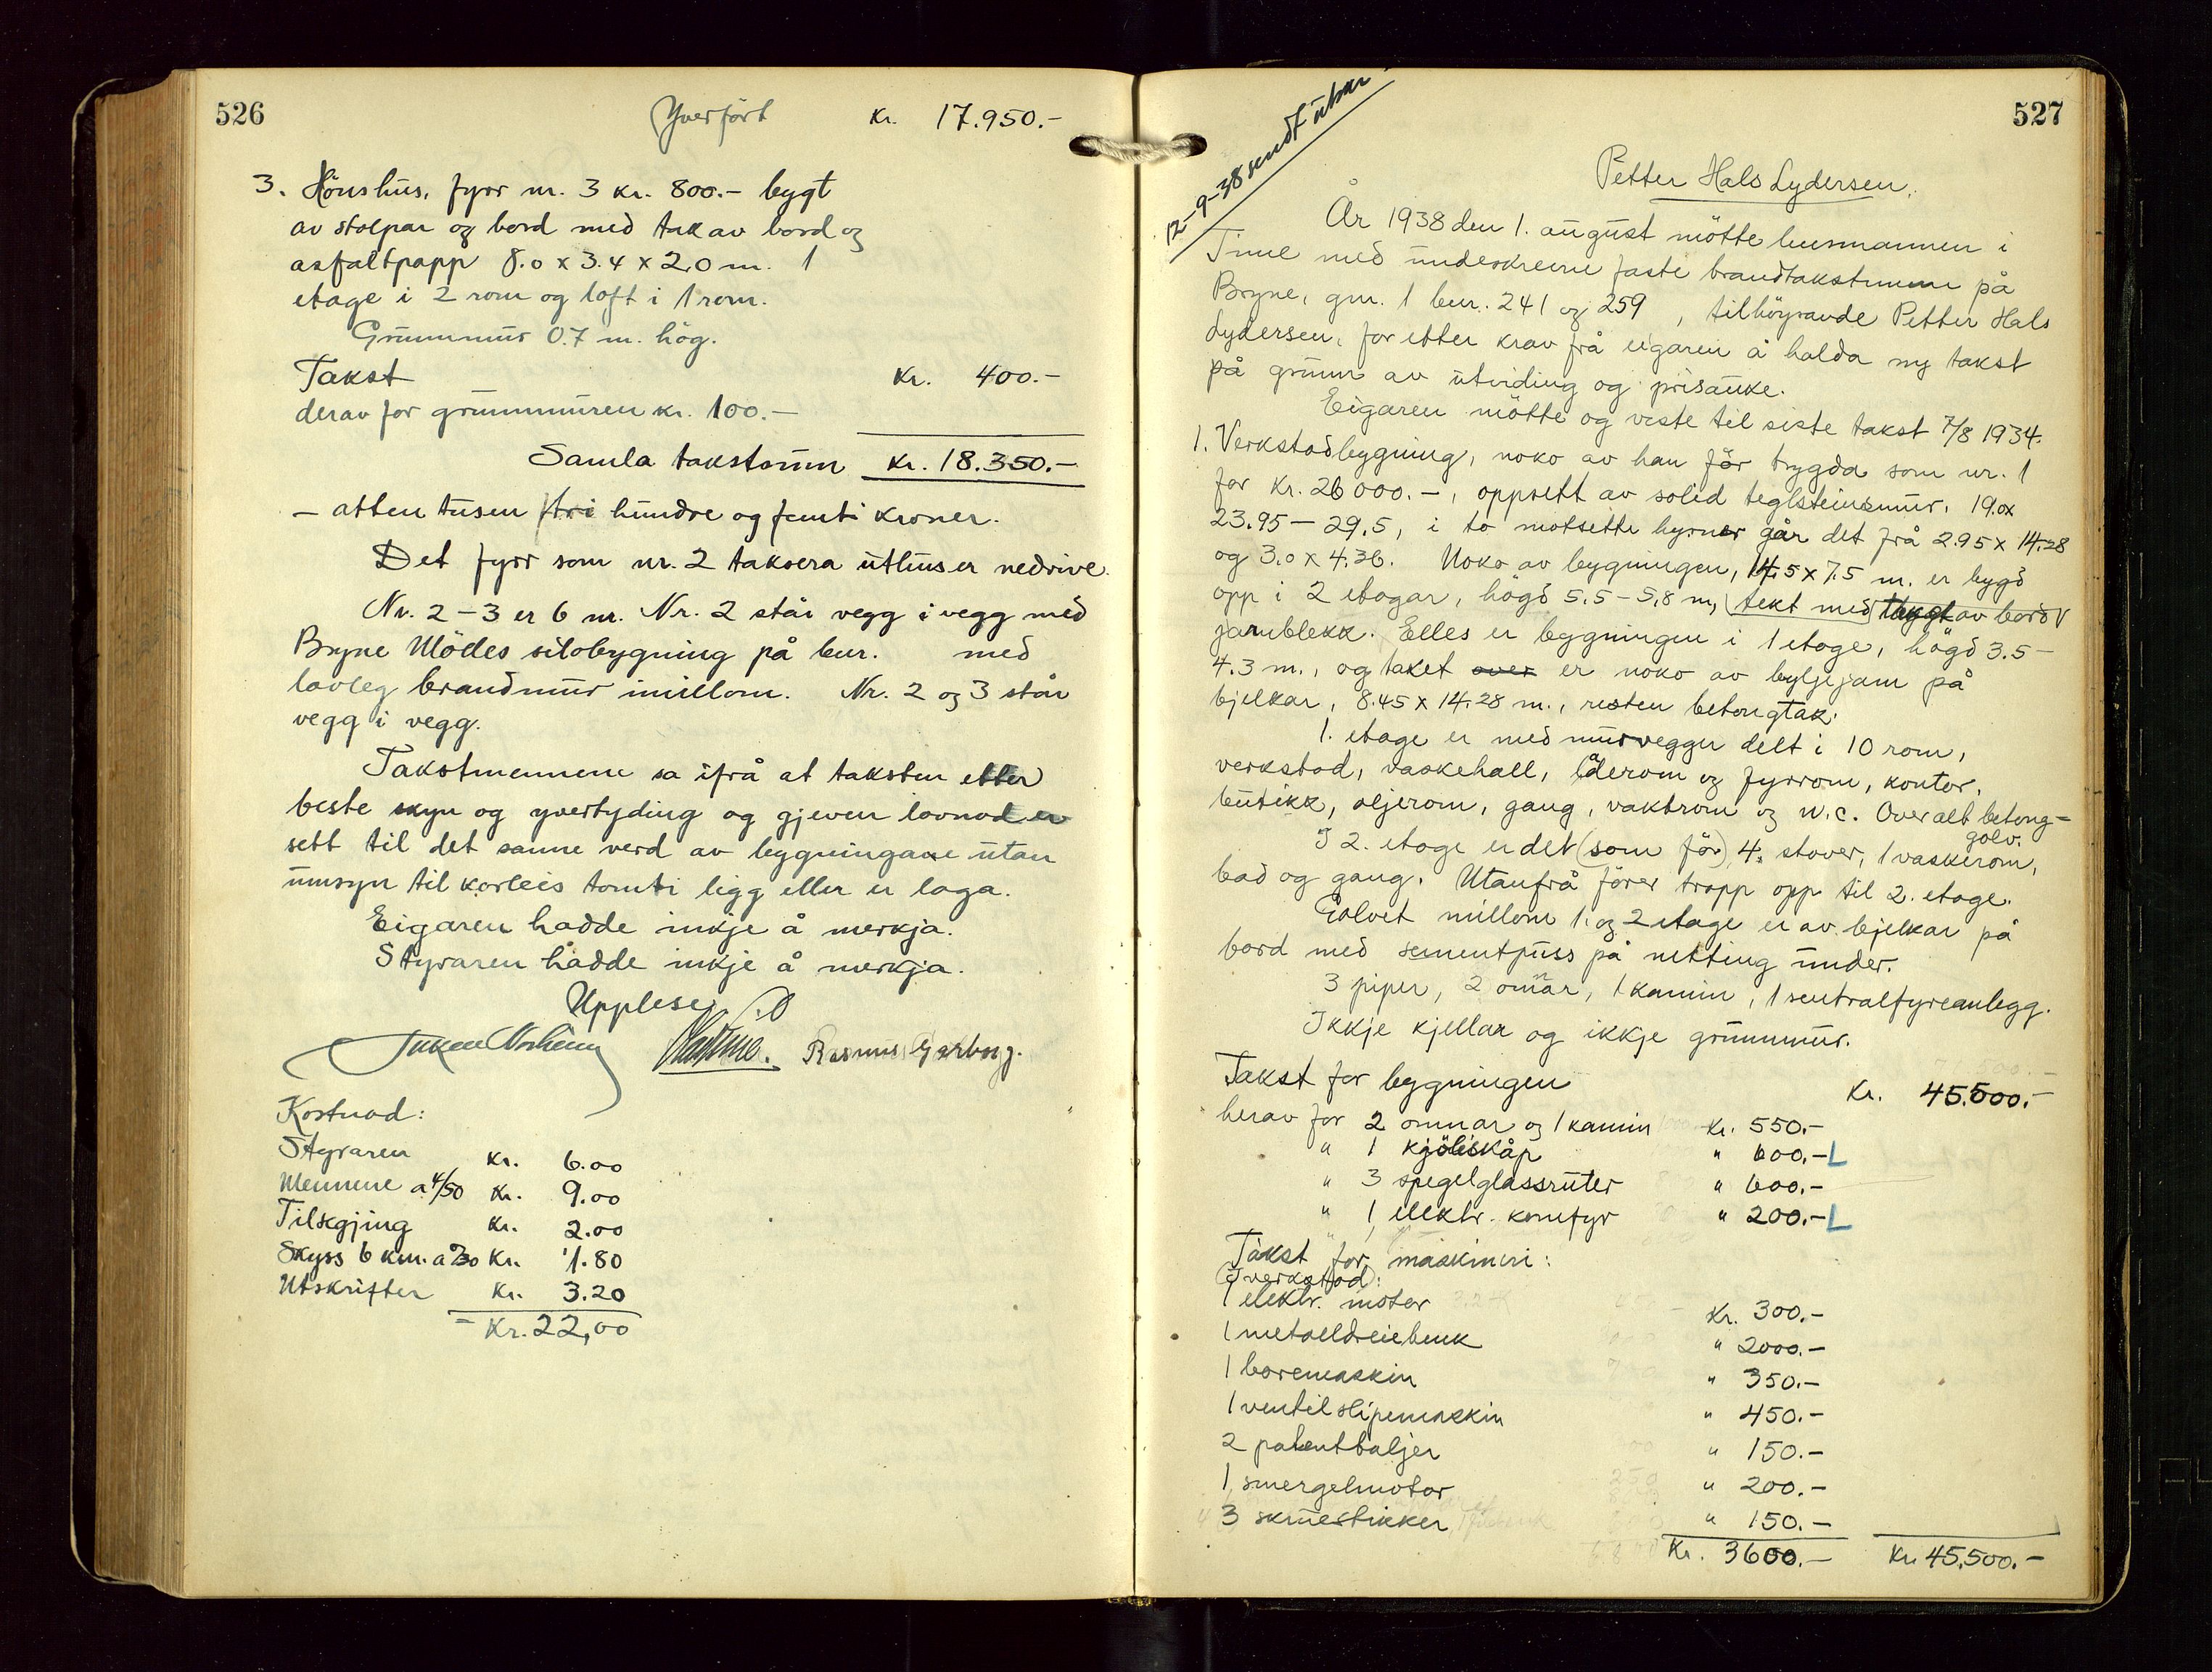 526
Yverført Kr. 17.950.-
3. Hönshus, fyrr nr. 3 kr. 800.- bygt
av stolpar og bord med tak av bord og
asfaltpapp 8.0 x 3.4 x 2.0 m. 1
etage i 2 rom og loft i 1 rom.
Grunnmur 0.7 m. hög.
Takst Kr. 400.-
derav for grunnmuren kr. 100.-
Samla takstsum Kr. 18.350.-
- atten tusen tri hundre og femti kroner.
Det fyrr som nr. 2 taksera uthus er nedrive.
Nr. 2 - 3 er 6 m. Nr. 2 står vegg i vegg med
Bryne Mölles silobygning på bnr. med
lovleg brandmur imillom. Nr. 2 og 3 står
vegg i vegg.
Takstmennene sa ifrå at taksten etter
beste skyn og yvertyding og gjeven lovnad er
sett til det sanne verd av bygningane utan
umsyn til korleis tomti ligg eller er laga.
Eigaren hadde inkje å merkja.
Styraren hadde inkje å merkja.
Upplese
Rasmus Garborg.
Kostnad:
Styraren Kr. 6.00
Mennene a 4/50 Kr. 9.00
Tilsegjing Kr. 2.00
Skyss 6 km. a 30 Kr. 1.80
Utskrifter Kr. 3.20
= Kr. 22,00
527
12-9-38 sendt utskr
Petter Hals Lydersen.
År 1938 den 1. august mötte lensmannen i
Time med underskrevne faste brandtakstmenn på
Bryne, gnr. 1 bnr. 241 og 259, tilhöyrande Petter Hals
Lydersen, for etter krav frå eigaren å halda ny takst
på grunn av utviding og prisauke.
Eigaren mötte og viste til siste takst 7/8 1934.
1. Verkstadbygning, noko av han för trygda som nr. 1
for kr. 26000.-, oppsett av solid teglsteinsmur, 19.0x
23.95 - 29.5, i to motsette hyrner går det frå 2.95 x 14.28
og 3.0 x 4.36. Noko av bygningen, 14.5 x 7.5 m. er bygd
opp i 2 etagar, högd 5.5 - 5.8 m, tekt med av bord
jarnblekk. Elles er bygningen i 1 etage, högd 3.5 -
4.3 m., og taket over er noko av bylgjejarn på
bjelkar, 8.45 x 14.28 m., resten betongtak.
1. etage er med murvegger delt i 10 rom,
verkstad, vaskehall, laderom og fyrrom, kontor,
butikk, oljerom, gang, vaktrom og w.c. Overalt betong-
golv.
I 2. etage er det (som för) 4 stover, 1 vaskerom,
bad og gang. Utanfrå förer tropp opp til 2. etage.
Golvet millom 1. og 2 etage er av bjelkar på
bord med sementpuss på netting under.
3 piper, 2 omnar, 1 kamin, 1 sentralfyreanlegg.
Ikkje kjellar og ikkje grunnmur.
Takst for bygningen Kr. 45.500.-
herav for 2 omnar og 1 kamin Kr. 550.-
" 1 kjöleskåp " 600.- L
" 3 spegelglassruter " 600.-
" 1 elektr. komfyr " 200.- L
Takst for maskineri:
(I verkstad):
1 elektr. motor Kr. 300.-
1 metalldreiebenk " 2000.-
1 boremaskin " 350.-
1 ventilslipemaskin " 450.-
2 patenttaljer " 150.-
1 smergelmotor " 200.-
3 skruestikker " 150.-
Kr. 3600.- Kr. 45.500.-